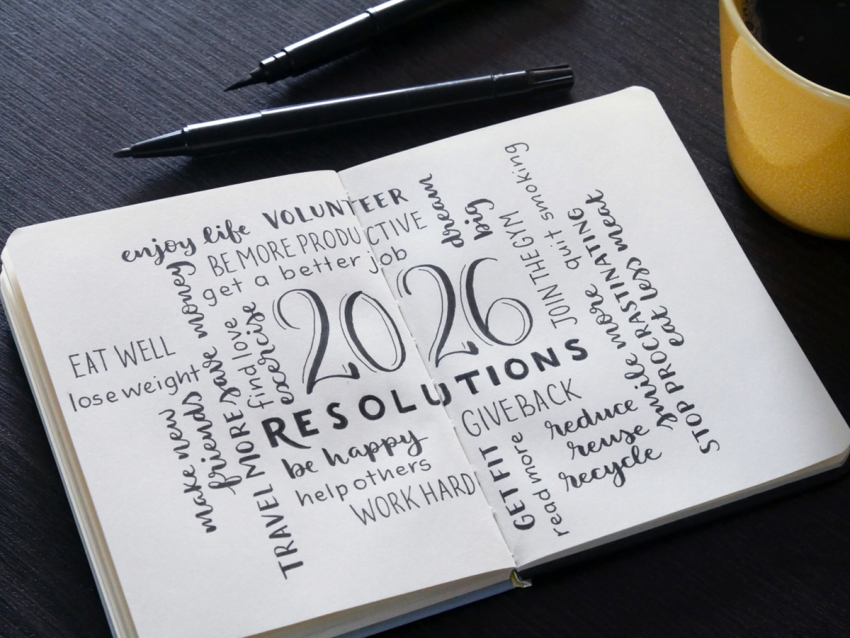 enjoy life
VOLUNTEER
BE MORE PRODUCTIVE
get a better job
dream
big
quit smoking
JOIN THE GYM
2026
RESOLUTIONS
EAT WELL
lose weight
save money
find love
exercise
make new
friends
TRAVEL MORE
be happy
help others
WORK HARD
GIVE BACK
reduce
reuse
recycle
GET FIT
read more
smile more
STOP PROCRASTINATING
eat less meat